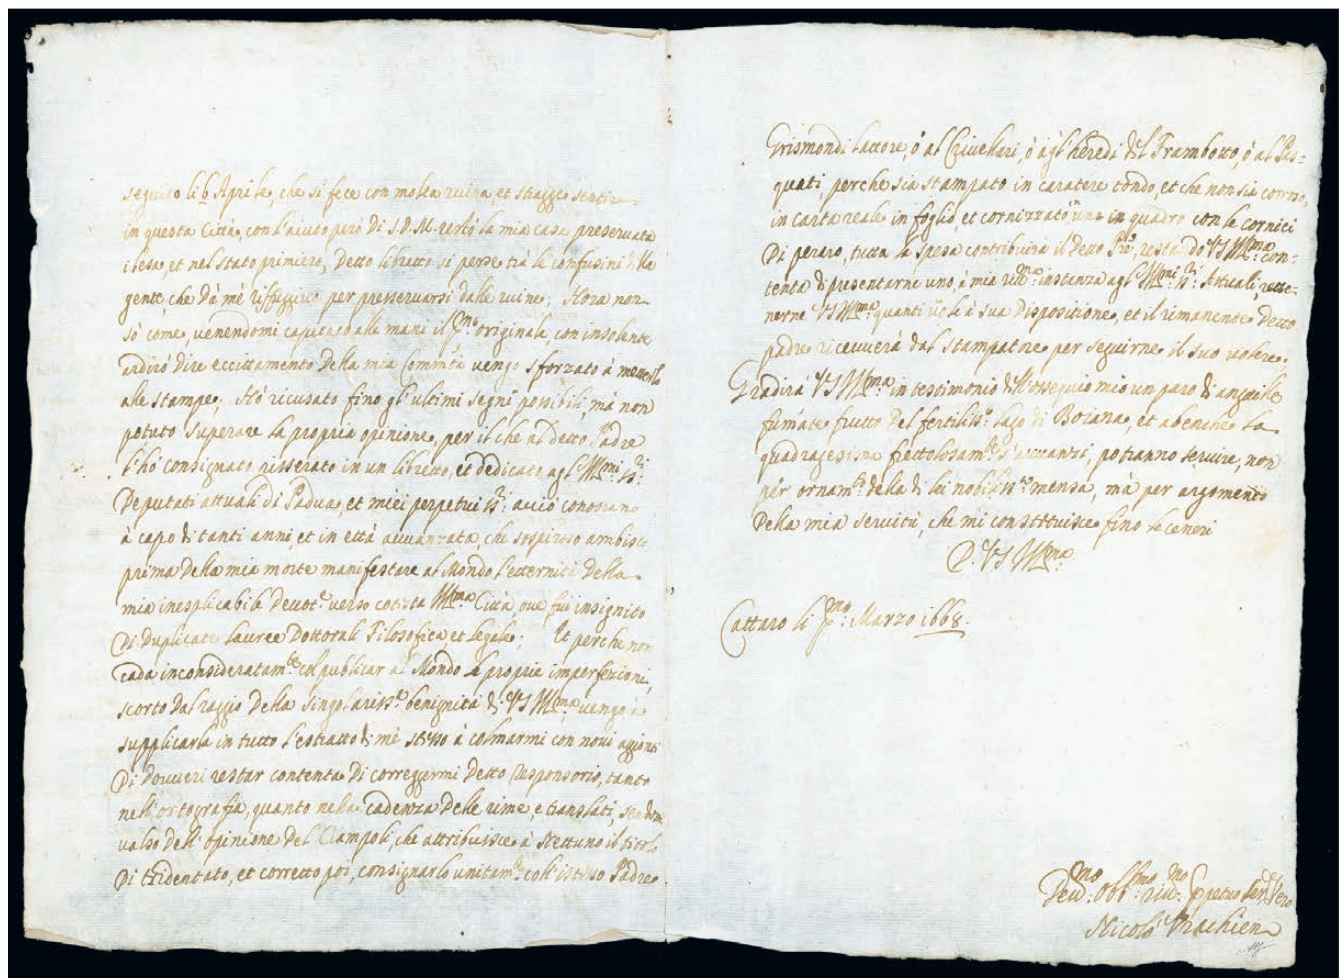 seguito li 6 Aprile, che si fece con molta ruina, et stragge sentir
in questa Città, con l'aiuto però di S.D.M. restò la mia casa preservata
ilesa, et nel stato primiero, Detto libretto si perse trà le confusini della
gente, che dà mè riffuggirō per preservarsi dalle ruine; Hora non
sò come, venendomi capitato alle mani il pmo originale con insolente
ardirò dire eccittamento della mia Commità vengo sforzato à metterlo
alle stampe, Hò ricusato fino gl'ultimi segni possibili, mà non
potuto superare la propria opinione, per il che al detto Padre
l'hò consignato risserato in un libretto, et dedicato agl' Illmi SSri
Deputati attuali di Padua, et miei perpetui SSri acciò conoscano
à capo di tanti anni, et in età avvanzata, che sospiroso ambisco
prima della mia morte manifestare al Mondo l'etternità della
mia inesplicabile Devote verso cotesta Illma Città ove fui insignito
di Duplicate lauree Dottorali Filosofica et legale; Et perche non
cada inconsideratamte col publicar al Mondo le proprie imperfezioni,
scorto dal raggio della singolarissa benignità di VS Illma, vengo à
supplicarla in tutto l'estratto di mè stesso à colmarmi con novi aggionti
di dovveri restar contenta di correggermi detto Responsorio, tanto
nell'ortografia, quanto nella cadenza delle rime, e translati,
valso dell'opinione del Ciampoli, che attribuisce à Nettuno il titolo
di tridentato, et corretto poi, consignarlo unitamte coll'istesso Padre
Grismondi lattore, ò al Crivellari, ò agl'heredi del Frambotto, ò al Pas=
quati, perche sia stampato in caratere tondo, et che non sia corroso,
in carta reale in foglio, et cornizzato uno in quadro con le cornici
di peraro, tutta la spesa contribuirà il detto Pre, restando VS Illma con=
tenta di presentarne uno, à mia instanza agl' Illmi SSri Attuali,
nerne VS Illma quanti vole à sua Dispositione, et il rimanente detto
padre riceuverà dal stampatore per seguirne il suo volere.
Gradirà VS Illma in testimonio dell'ossequio mio un paro di anguille
fumate frutto del fertiliss.o lago di Boiana, et abenche la
quadragesima frettolosamte s'avvanzi, potranno servire, non
per ornamto della di lei nobilissa mensa, mà per argomento
della mia servitù, che mi constituisce fino le ceneri
D. VS Illma
Cattaro li pmo Marzo 1668.
Devmo Obbmo
Nicolò Vrachien